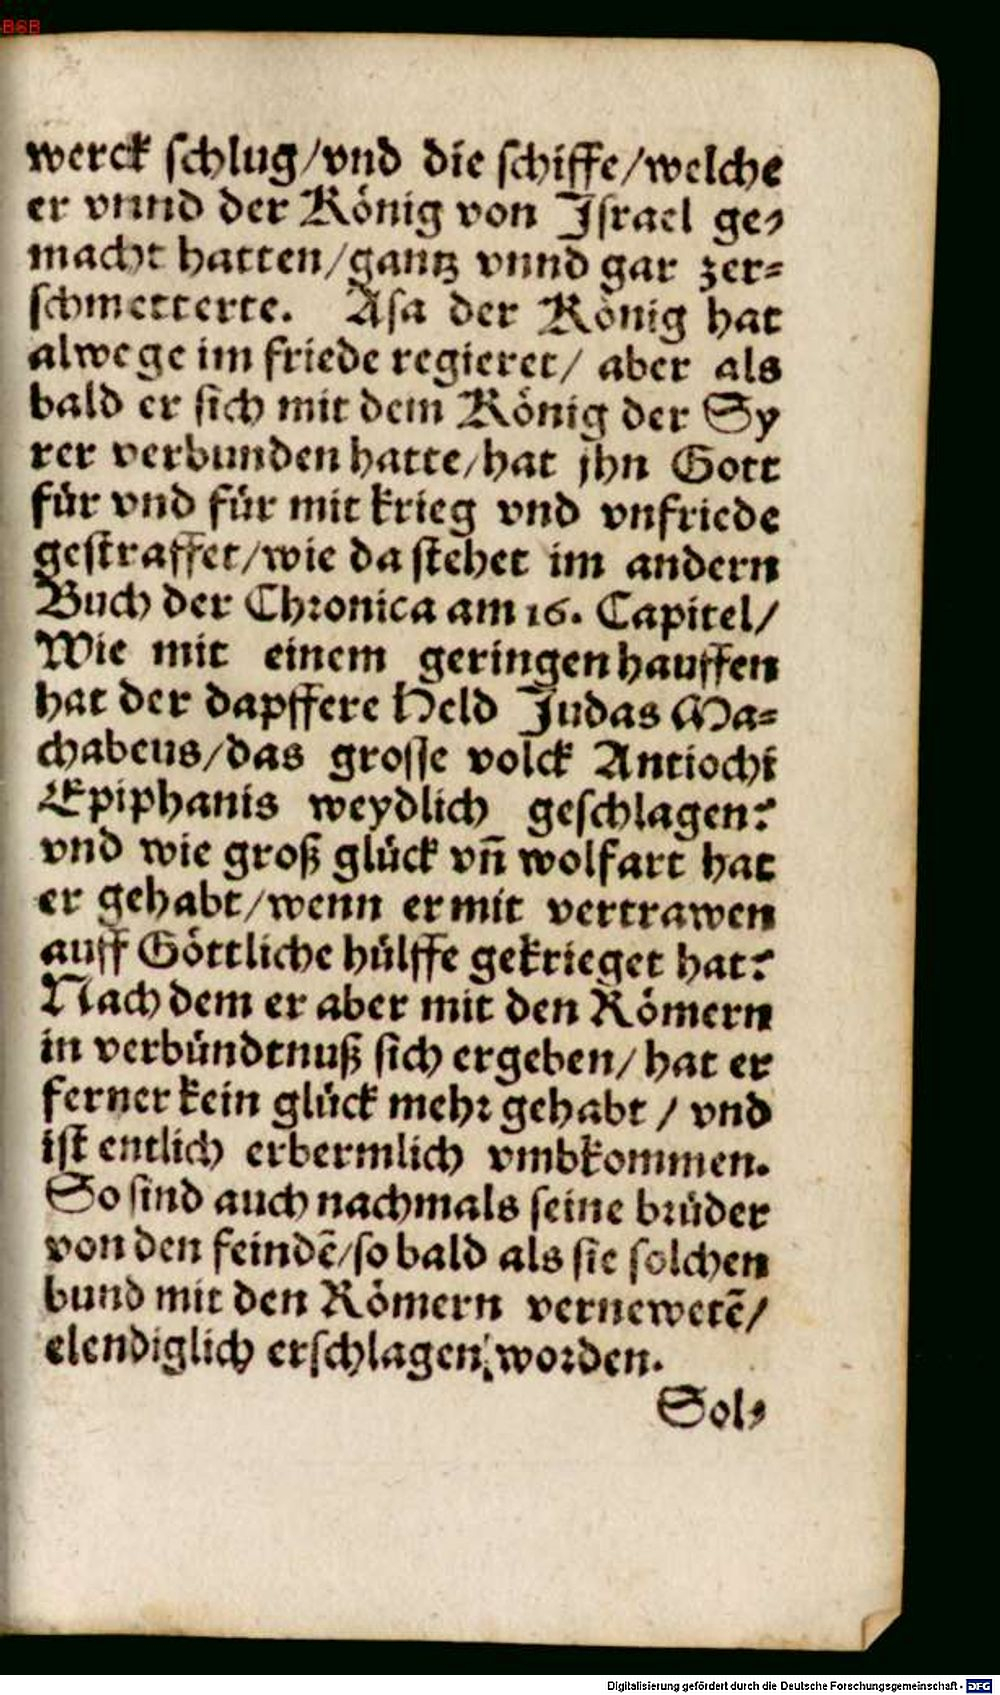 BSB
werck ſchlug/vnd die ſchiffe/welche
er vnnd der König von Iſrael ge⸗
macht hatten/gantz vnnd gar zer⸗
ſchmetterte. Aſa der König hat
alwege im friede regieret/ aber als
bald er ſich mit dem König der Sy
rer verbunden hatte/hat jhn Gott
für vnd für mit krieg vnd vnfriede
geſtraffet/wie da ſtehet im andern
Buch der Chronica am 16. Capitel/
Wie mit einem geringen hauffen
hat der dapffere Held Judas Ma⸗
chabeus/das groſſe volck Antiochi
Epiphanis weydlich geſchlagen?
vnd wie groß glück vñ wolfart hat
er gehabt/wenn er mit vertrawen
auff Göttliche hülffe gekrieget hat?
Nach dem er aber mit den Römern
in verbündtnuß ſich ergeben/ hat er
ferner kein glück mehr gehabt / vnd
iſt entlich erbermlich vmbkommen.
So ſind auch nachmals ſeine brüder
von den feindē/ſo bald als ſie ſolchen
bund mit den Römern vernewetē/
elendiglich erſchlagen worden.
Sol⸗
Digitalisierung gefördert durch die Deutsche Forschungsgemeinschaft - DFG